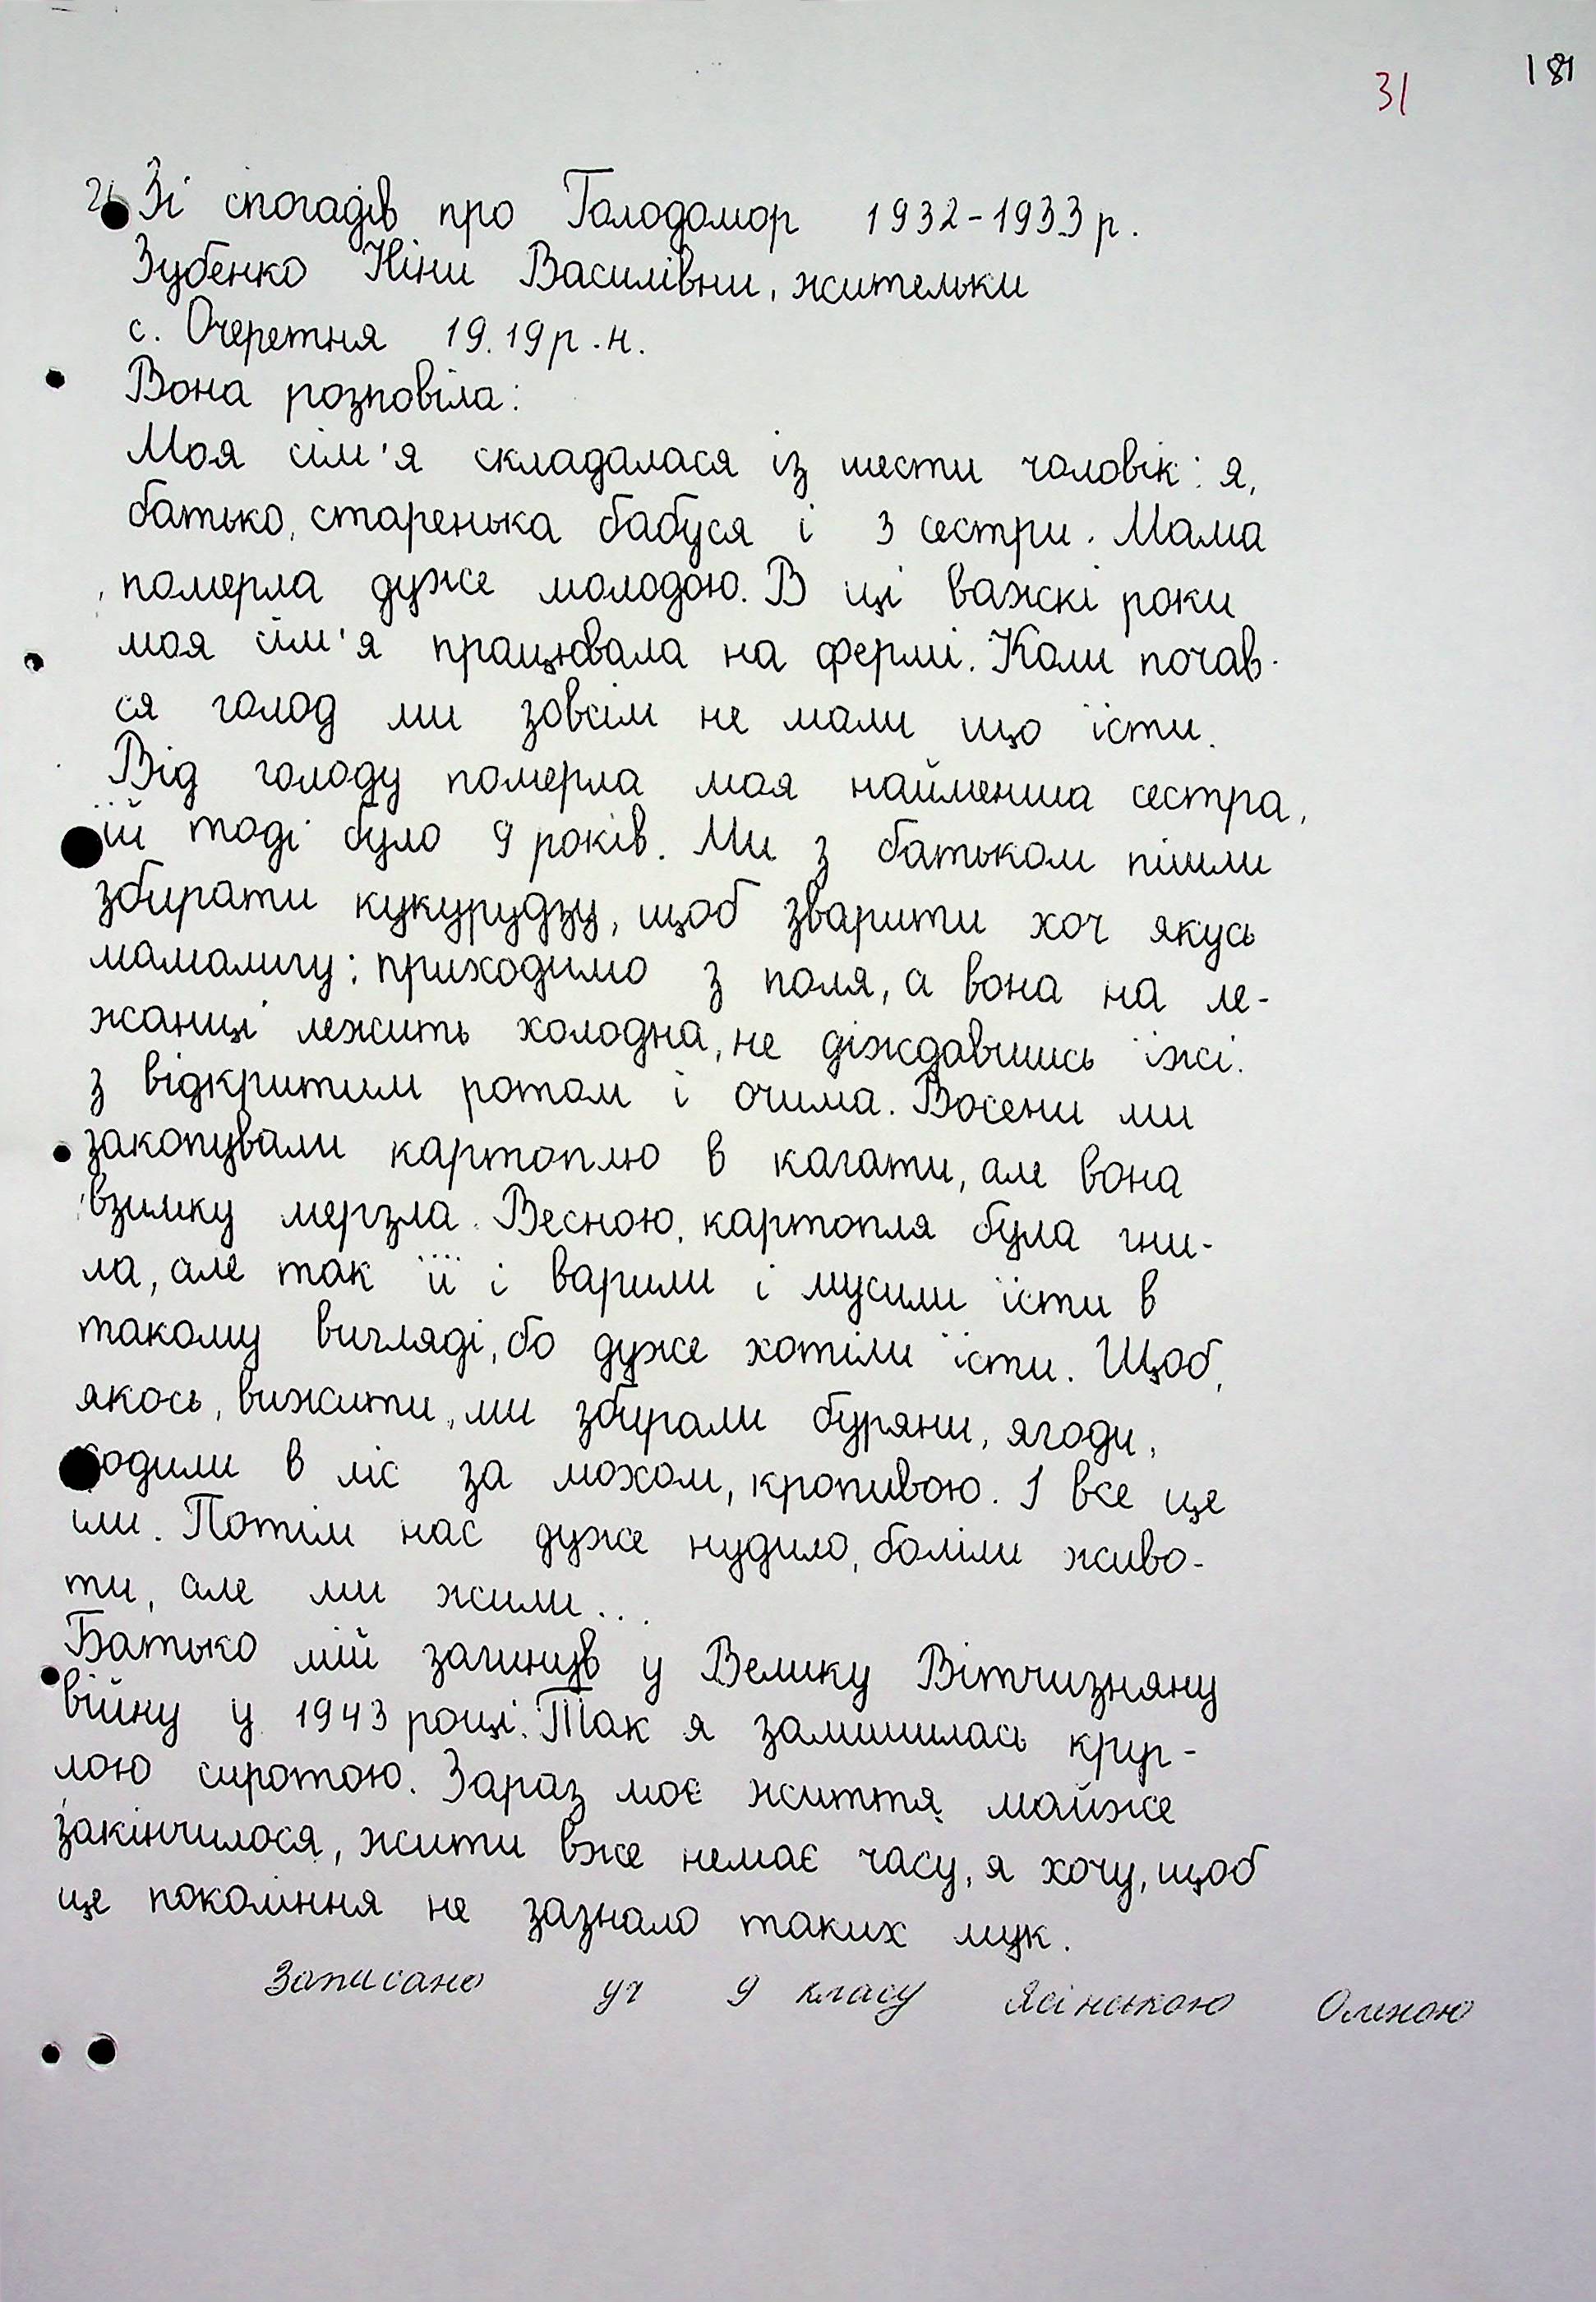 31 181
Зі спогадів про Голодомор 1932-1933 р.
Зубенко Ніни Василівни, жительки
с. Очеретня 19.19 р.н.
Вона розповіла:
Моя сім'я складалася із шести чоловік: я,
батько, старенька бабуся і 3 сестри. Мама
померла дуже молодою. В ці важкі роки
моя сім'я працювала на фермі. Коли почав-
ся голод ми зовсім не мали що їсти.
Від голоду померла моя найменша сестра,
їй тоді було 9 років. Ми з батьком пішли
збирати кукурудзу, щоб зварити хоч якусь
мамалигу; приходимо з поля, а вона на ле-
жанці лежить холодна, не діждавшись їжі.
з відкритим ротом і очима. Восени ми
закопували картоплю в кагати, але вона
взимку мерзла. Весною, картопля була гни-
ла, але так її і варили і мусили їсти в
такому вигляді, бо дуже хотіли їсти. Щоб,
якось, вижити, ми збирали буряни, ягоди,
ходили в ліс за мохом, кропивою. І все це
їли. Потім нас дуже нудило, боліли живо-
ти, але ми жили...
Батько мій загинув у Велику Вітчизняну
війну у 1943 році. Так я залишилась круг-
лою сиротою. Зараз моє життя майже
закінчилося, жити вже немає часу, я хочу, щоб
це покоління не зазнало таких мук.
Записано уч 9 класу Ясінською Оленою